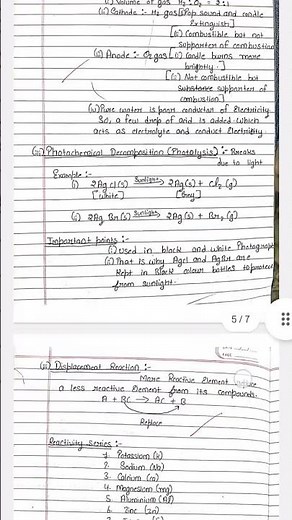 (i) Volume of gas H2 : O2 = 2:1
(ii) Cathode :- H2 gas [(i) Pop sound and candle
Extinguish]
[(ii) Combustible but not
supporter of combustion
(iii) Anode :- O2 gas [(i) candle burns more
brightly.]
[(ii) Not combustible but
supporter of
combustion]
(iv) Pure water is poor conductor of Electricity
So, a few drop of acid is added which
acts as electrolyte and conduct Electricity
(iii) Photochemical Decomposition (Photolysis) :- Breaks
due to light
Example :-
(i) 2AgCl(s) Sunlight→ 2Ag(s) + Cl2(g)
[white] [Grey]
(ii) 2AgBr(s) Sunlight→ 2Ag(s) + Br2(g)
Important points :-
(i) Used in black and white Photograph
(ii) That is why Agcl and AgBr are
Kept in Black colour bottles to protect
from sunlight.
5/7
Displacement Reaction :-
More Reactive Element
a less reactive Element from its compounds.
A + BC → AC + B
Replace
Reactivity Series :-
1. Potassium (K)
2. Sodium (Na)
3. Calcium (Ca)
4. Magnesium (Mg)
5. Aluminium (Al)
6. Zinc (Zn)